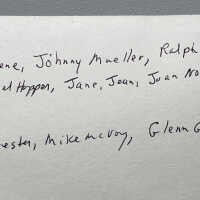 ene, Johnny Mueller, Ralph
el Hoppen, Jane, Jean, Juan No
ester, Mike McVoy, Glenn G